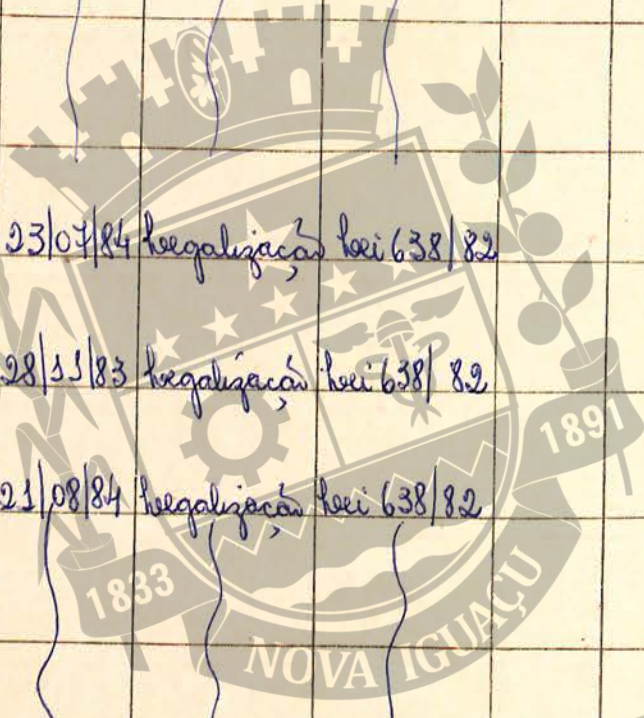 23/07/84 Legalização Lei 638/82
28/11/83 Legalização Lei 638/82
1891
21/08/84 Legalização Lei 638/82
1833
NOVA IGUAÇU